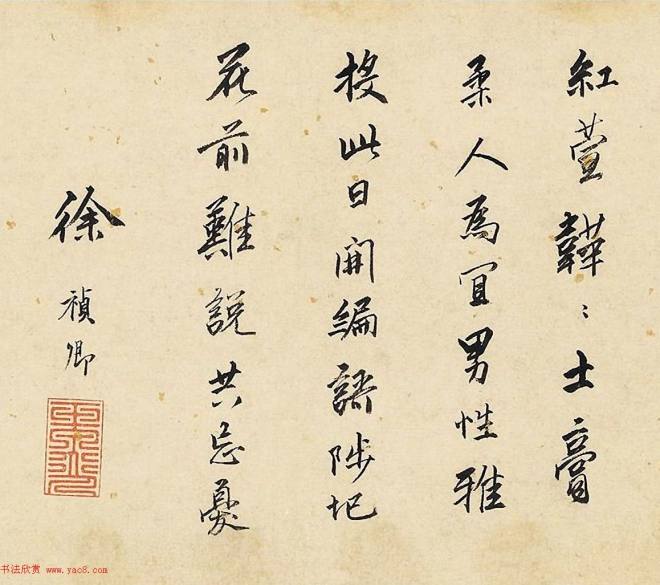 紅萱韡〻土膏
柔人為宜男性雅
投此日開編語陟屺
花前難説共忘憂
徐禎卿
书法欣赏 www.yac8.com